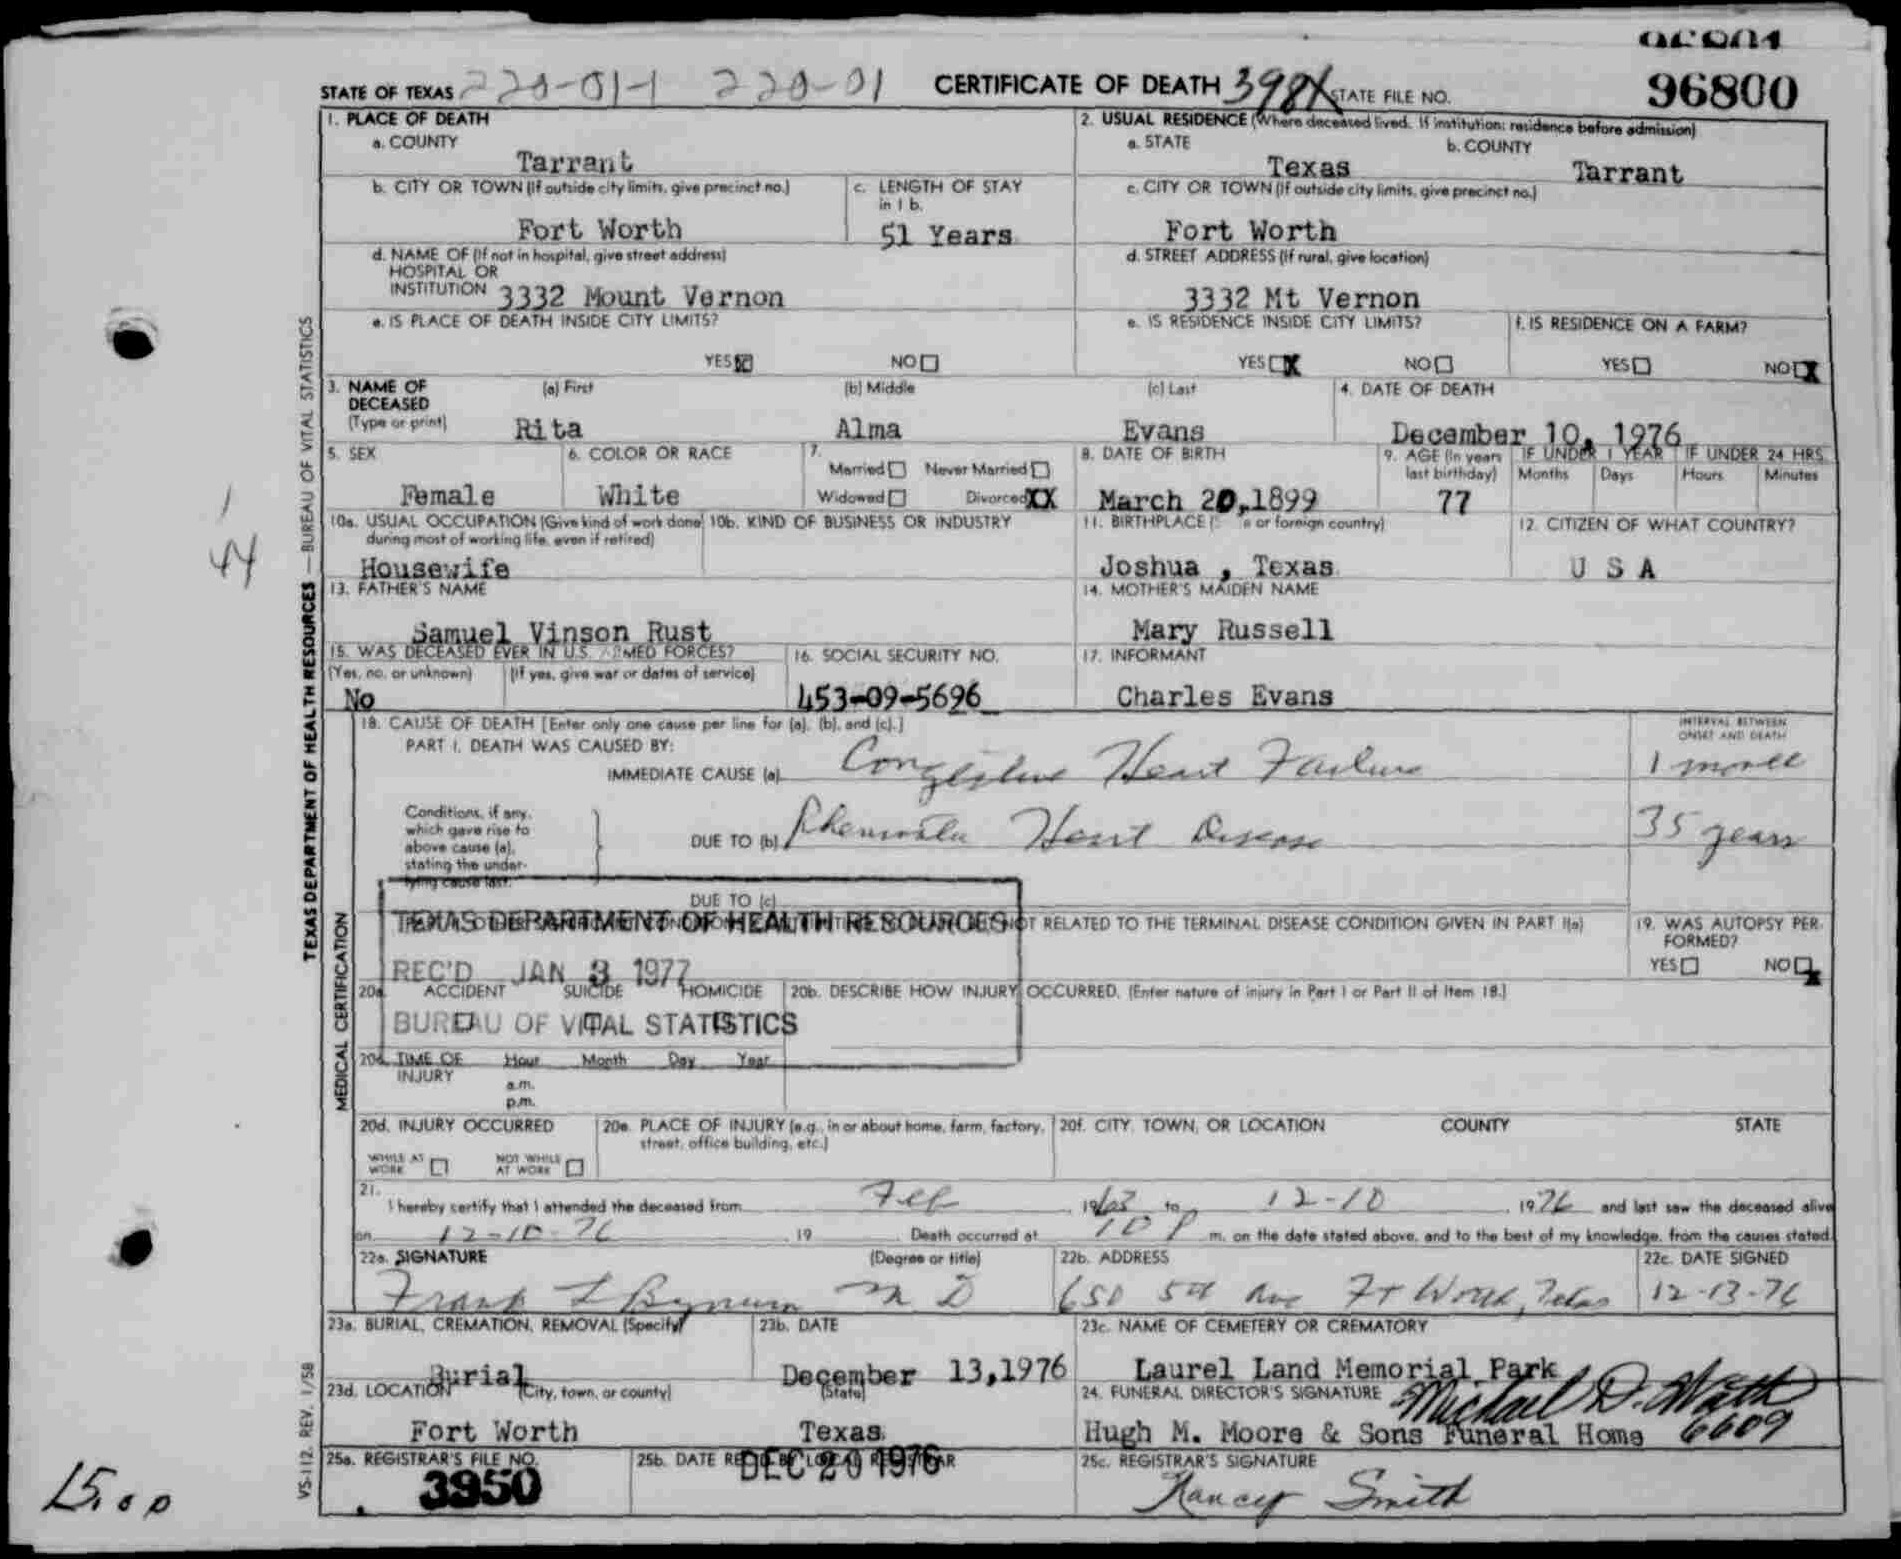 96801
STATE OF TEXAS 220-01-1 220-01 CERTIFICATE OF DEATH 398X STATE FILE NO. 96800
1. PLACE OF DEATH
a. COUNTY
Tarrant
2. USUAL RESIDENCE (Where deceased lived. If institution: residence before admission)
a. STATE b. COUNTY
Texas Tarrant
b. CITY OR TOWN (If outside city limits, give precinct no.)
Fort Worth
c. LENGTH OF STAY
in 1 b.
51 Years
c. CITY OR TOWN (If outside city limits, give precinct no.)
Fort Worth
d. NAME OF (If not in hospital, give street address)
HOSPITAL OR
INSTITUTION 3332 Mount Vernon
d. STREET ADDRESS (If rural, give location)
3332 Mt Vernon
e. IS PLACE OF DEATH INSIDE CITY LIMITS?
YES X NO
e. IS RESIDENCE INSIDE CITY LIMITS?
YES X NO
f. IS RESIDENCE ON A FARM?
YES NO X
3. NAME OF
DECEASED
(Type or print)
(a) First (b) Middle (c) Last
Rita Alma Evans
4. DATE OF DEATH
December 10, 1976
5. SEX
Female
6. COLOR OR RACE
White
7.
Married Never Married
Widowed Divorced XX
8. DATE OF BIRTH
March 20,1899
9. AGE (In years
last birthday)
77
IF UNDER 1 YEAR IF UNDER 24 HRS.
Months Days Hours Minutes
10a. USUAL OCCUPATION (Give kind of work done
during most of working life, even if retired)
Housewife
10b. KIND OF BUSINESS OR INDUSTRY
11. BIRTHPLACE ( e or foreign country)
Joshua , Texas
12. CITIZEN OF WHAT COUNTRY?
U S A
13. FATHER'S NAME
Samuel Vinson Rust
14. MOTHER'S MAIDEN NAME
Mary Russell
15. WAS DECEASED EVER IN U.S. ARMED FORCES?
(Yes, no, or unknown) (If yes, give war or dates of service)
No
16. SOCIAL SECURITY NO.
453-09-5696
17. INFORMANT
Charles Evans
18. CAUSE OF DEATH [Enter only one cause per line for (a), (b), and (c).]
PART I. DEATH WAS CAUSED BY:
IMMEDIATE CAUSE (a) Congestive Heart Failure
INTERVAL BETWEEN
ONSET AND DEATH
1 month
Conditions, if any,
which gave rise to
above cause (a),
stating the under-
lying cause last.
DUE TO (b) Rheumatic Heart Disease
35 years
DUE TO (c)
NOT RELATED TO THE TERMINAL DISEASE CONDITION GIVEN IN PART I(a)
19. WAS AUTOPSY PER-
FORMED?
YES NO X
TEXAS DEPARTMENT OF HEALTH RESOURCES
REC'D JAN 3 1977
BUREAU OF VITAL STATISTICS
20a ACCIDENT SUICIDE HOMICIDE
20b. DESCRIBE HOW INJURY OCCURRED. (Enter nature of injury in Part I or Part II of Item 18.)
20c. TIME OF
INJURY
Hour Month Day Year
a.m.
p.m.
20d. INJURY OCCURRED
WHILE AT
WORK
NOT WHILE
AT WORK
20e. PLACE OF INJURY (e.g., in or about home, farm, factory,
street, office building, etc.)
20f. CITY, TOWN, OR LOCATION COUNTY STATE
21.
I hereby certify that I attended the deceased from Feb 1963 to 12-10 1976 and last saw the deceased alive
on 12-10-76 19 . Death occurred at 10 P m. on the date stated above, and to the best of my knowledge, from the causes stated.
22a. SIGNATURE (Degree or title)
Frank L Bynum M D
22b. ADDRESS
650 5th Ave Ft Worth, Texas
22c. DATE SIGNED
12-13-76
23a. BURIAL, CREMATION, REMOVAL (Specify)
Burial
23b. DATE
December 13,1976
23c. NAME OF CEMETERY OR CREMATORY
Laurel Land Memorial Park
23d. LOCATION (City, town, or county) (State)
Fort Worth Texas
24. FUNERAL DIRECTOR'S SIGNATURE Michael D.
Hugh M. Moore & Sons Funeral Home 6609
25a. REGISTRAR'S FILE NO.
3950
25b. DATE REC'D BY LOCAL REGISTRAR
DEC 20 1976
25c. REGISTRAR'S SIGNATURE
Nancy Smith
TEXAS DEPARTMENT OF HEALTH RESOURCES — BUREAU OF VITAL STATISTICS
MEDICAL CERTIFICATION
VS-112 REV. 1/58
1
44
15.00